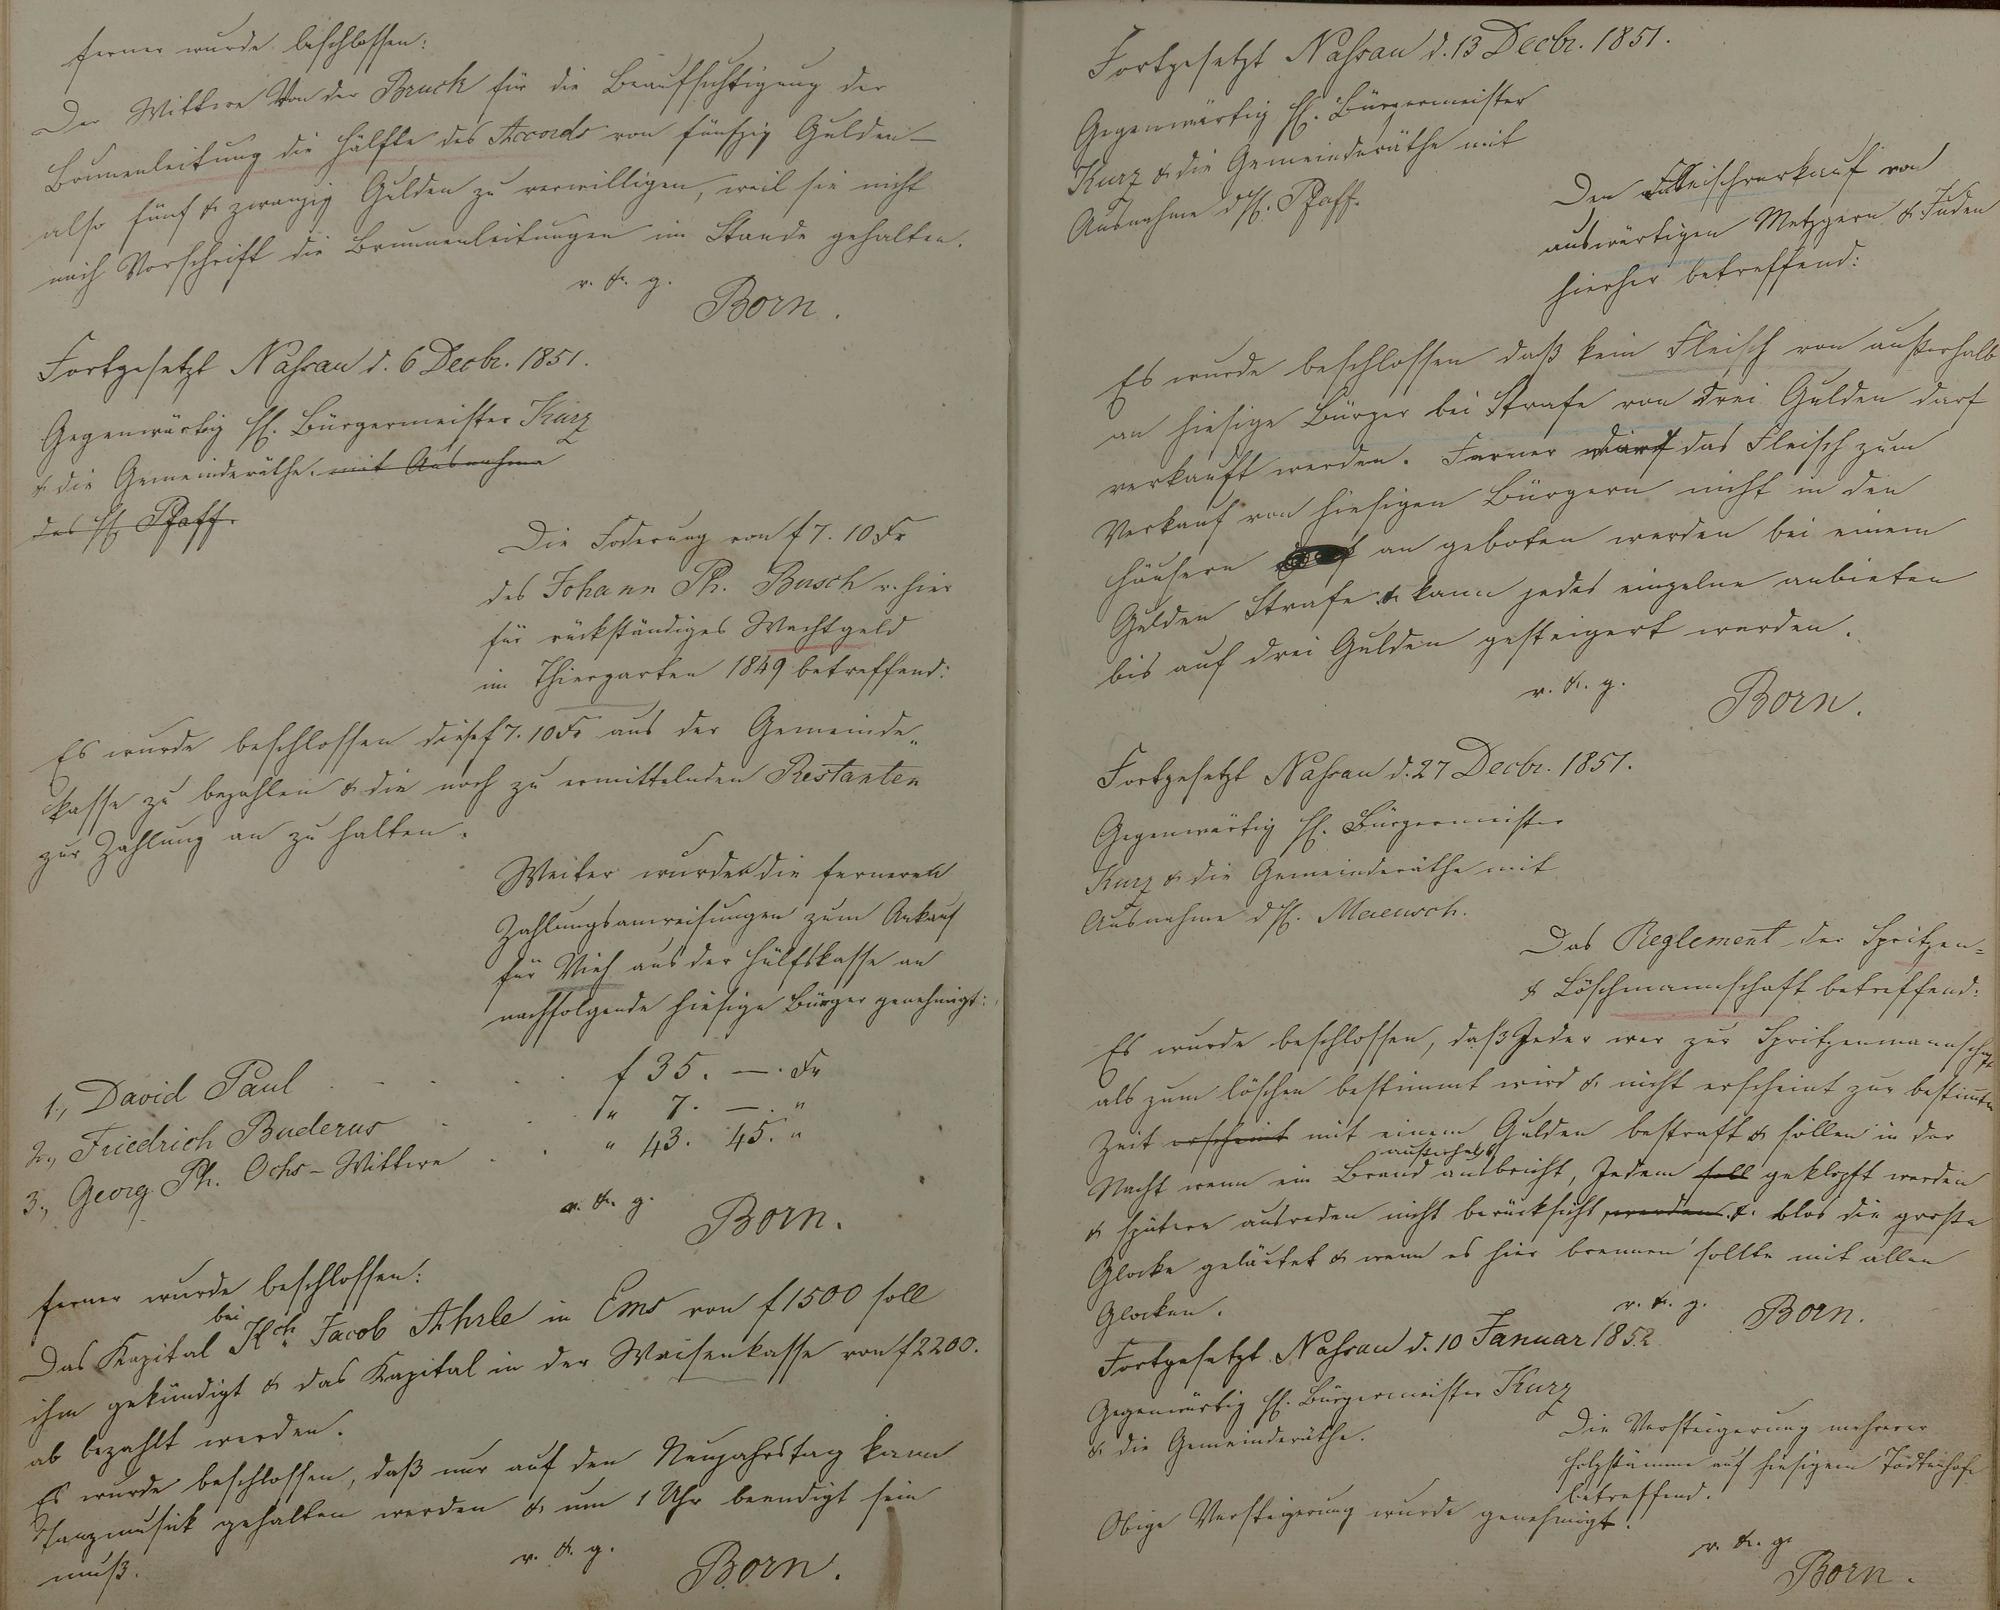 ferner wurde beschlossen:
Der Wittwe Von der Bruck für die Beaufsichtigung der
Brunnenleitung die Hälfte des Accords von fünfzig Gulden –
also fünf & zwanzig Gulden zu verwilligen, weil sie nicht
nach Vorschrift die Brunnenleitungen im Stande gehalten.
v. & g.
Born.
Fortgesetzt Nassau d. 6 Decbr. 1851.
Gegenwärtig H. Bürgermeister Kurz
& die Gemeinderäthe. mit Ausnahme
des H. Pfaff.
Die Foderung von f 7. 10 Xr
des Johann Ph. Busch v. hier
für rückständiges Wachtgeld
im Thiergarten 1849 betreffend:
Es wurde beschlossen diese f 7. 10 Xr aus der Gemeinde„
kasse zu bezahlen & die noch zu ermittelnden Restanten
zur Zahlung an zu halten.
Weiter wurden die ferneren
Zahlungsanweisungen zum Ankauf
für Vieh aus der Hülfskasse an
nachfolgende hiesige Bürger genehmigt:
1., David Paul f 35. –. Xr
2., Friedrich Buderus " 7. –. "
3., Georg Ph. Ochs – Wittwe " 43. 45. "
v. & g.
Born.
ferner wurde beschlossen:
Das Kapital bei Hch. Jacob Ahrle in Ems von f 1500 soll
ihm gekündigt & das Kapital in der Waisenkasse von f 2200.
ab bezahlt werden.
Es wurde beschlossen, daß nur auf den Neujahrstag kann
Tanzmusick gehalten werden & um 1 Uhr beendigt sein
muß.
v. & g.
Born.
Fortgesetzt Nassau d. 13 Decbr. 1851.
Gegenwärtig H. Bürgermeister
Kurz & die Gemeinderäthe mit
Ausnahme d H. Pfaff.
Den Fleischverkauf von
auswärtigen Metzgern & Juden
hierher betreffend:
Es wurde beschlossen daß kein Fleisch von außerhalb
an hiesige Bürger bei Strafe von drei Gulden darf
verkauft werden. Ferner darf das Fleisch zum
Verkauf von hiesigen Bürgern nicht in den
Häusern an geboten werden bei einem
Gulden Strafe & kann jedes einzelne anbieten
bis auf drei Gulden gesteigert werden.
v. & g.
Born.
Fortgesetzt Nassau d. 27 Decbr. 1851.
Gegenwärtig H. Bürgermeister
Kurz & die Gemeinderäthe mit
Ausnahme d H. Maeusch.
Das Reglement der Spritzen=
& Löschmannschaft betreffend:
Es wurde beschlossen, daß Jeder wer zur Spritzenmannschaft
als zum löschen bestimmt wird & nicht erscheint zur bestimten
Zeit erscheint mit einem Gulden bestraft & sollen in der
Nacht wenn ein Brand außerhalb ausbricht, Jedem soll geklopft werden
& spätere ausreden nicht berücksicht werden &. blos die große
Glocke geläutet & wenn es hier brennen sollte mit allen
Glocken.
v. & g. Born.
Fortgesetzt Nassau d. 10 Januar 1852
Gegenwärtig H. Bürgermeister Kurz
& die Gemeinderäthe.
Die Versteigerung mehrerer
Holzstämme auf hiesigem Todtenhofe
betreffend.
Obige Versteigerung wurde genehmigt.
v. & g.
Born.